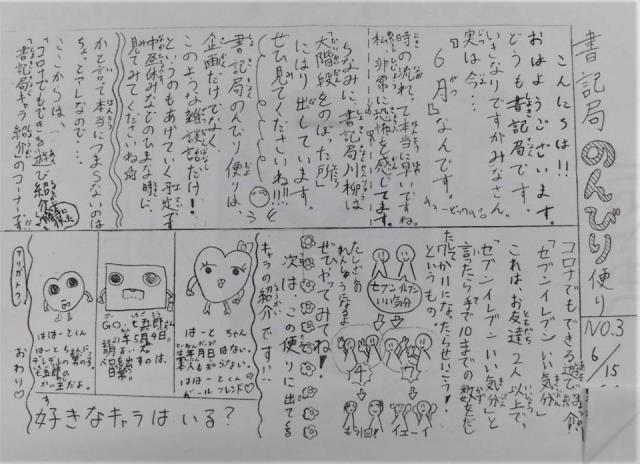 書記局 のんびり便り
NO.3
6/15
こんにちは!!
おはようございます。
どうも書記局です。
いきなりですがみなさん、
実は今…
『6月』なんです。
時の流れって本当に早いですね。
私、非常に恐怖を感じてします。
ちなみに、書記局川柳は
「大階段をのぼった所」
にはり出しています。
ぜひ見てくださいね!!!
書記局のんびり便りは、
企画だけでなく、
このような雑談だけ!
というのもあげていく予定です
中昼休みなどのひまな時に、
見てみてくださいね☆
かと言って本当につまらないのは
ちょっとアレなので…
ここからは、
「コロナでもできる遊び紹介」
「書記局キャラ紹介」のコーナーです
コロナでもできる遊び紹介
「セブンイレブンいい気分」
これは、お友達と2人以上で、
「セブンイレブンいい気分」と
言ったら手で10までの数をだし
たして
ワカ川になったらせいこう!
というもの。
セブンイレブン
いい気分
4
7
もう1回!
イエーイ
たしざんの
れんしゅうになるよ
ぜひやってみてね!
次は、この便りに出てくる
キャラの紹介です!!
はーとちゃん
はーとくん
ガールフレンド♡
はーとくん
好きなキャラはいる?
おわり♡